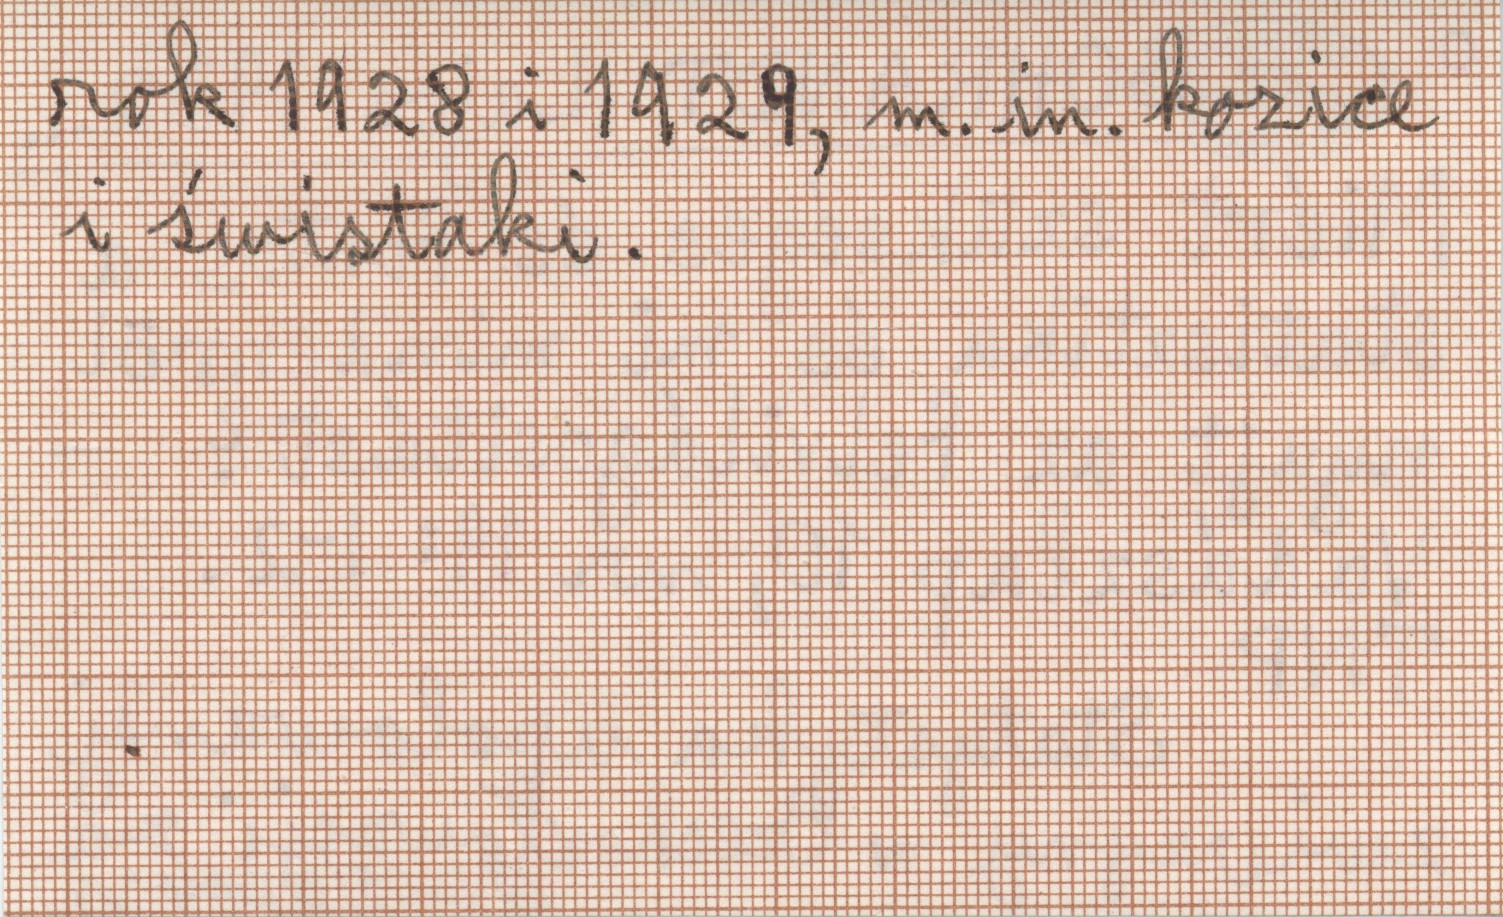 rok 1928 i 1929, m. in. kozice
i świstaki.